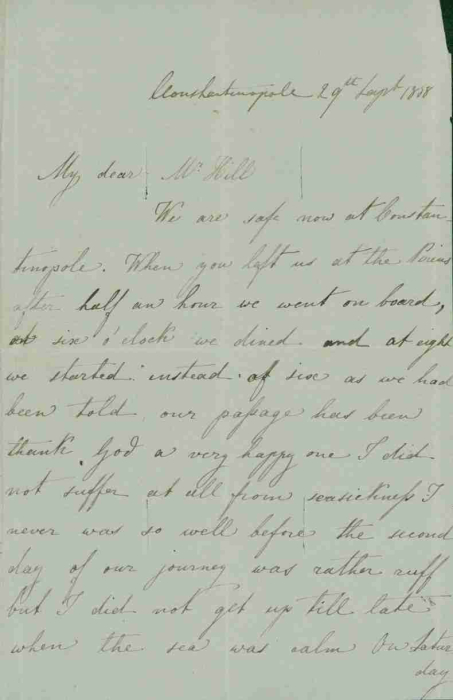 Constantinople 29th Sept 1858
My dear Mr Hill
We are safe now at Constan-
tinople. When you left us at the Pireus
after half an hour we went on board,
at six o'clock we dined and at eight
we started instead of six as we had
been told, our passage has been
thank God a very happy one I did
not suffer at all from seasickness I
never was so well before the second
day of our journey was rather ruff
but I did not get up till late
when the sea was calm On Satur
day